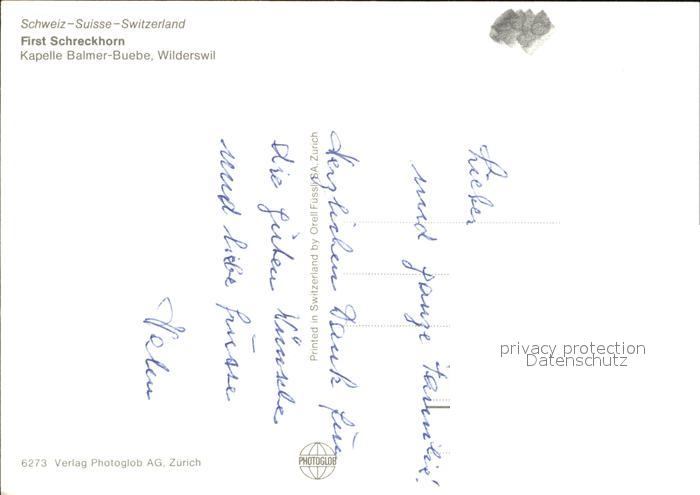 Schweiz–Suisse–Switzerland
First Schreckhorn
Kapelle Balmer-Buebe, Wilderswil
Lieber
und ganze Familie!
Herzlichen Dank für
die guten Wünsche
und liebe Grüsse
Printed in Switzerland by Orell Füssli SA, Zürich
privacy protection
Datenschutz
6273 Verlag Photoglob AG, Zürich
PHOTOGLOB